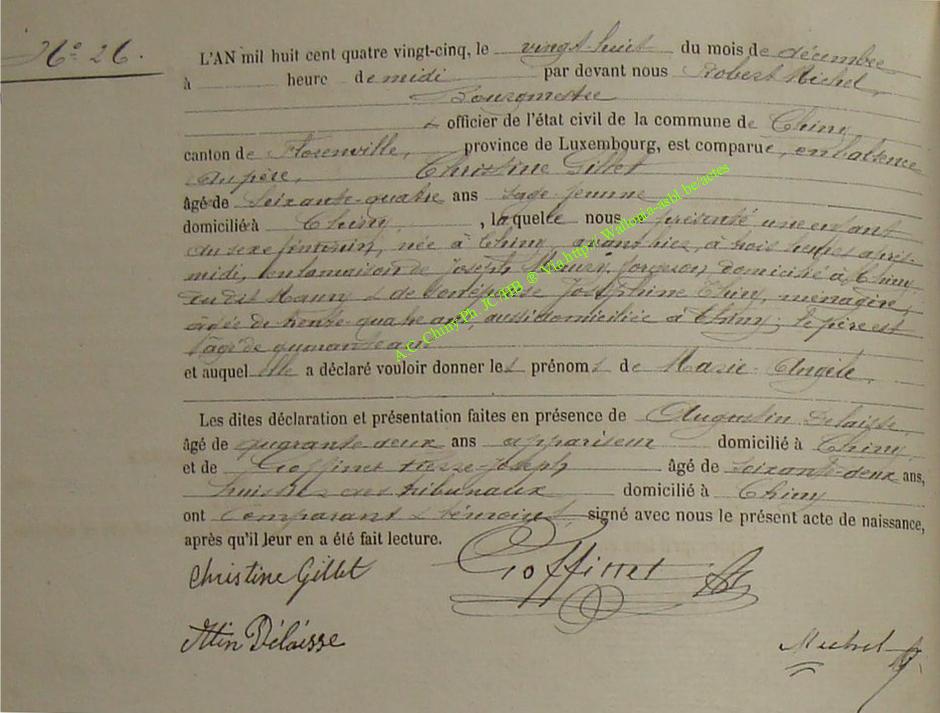 N° 26.
L'AN mil huit cent quatre vingt-cinq, le vingt-huit du mois de décembre
à heure de midi par devant nous Robert Michel,
Bourgmestre
& officier de l'état civil de la commune de Chiny,
canton de Florenville, province de Luxembourg, est comparue, en l'absence
du père, Christine Gillet
âgé de soixante-quatre ans sage-femme
domicilié à Chiny, laquelle nous a présenté une enfant
du sexe féminin, née à Chiny, avant hier, à trois heures après-
midi, en la maison de Joseph forgeron domicilié à Chiny
du dit & de Joséphine Chiny, ménagère,
âgée de trente-quatre ans, aussi domiciliée à Chiny; le père est
âgé de quarante ans
et auquel elle a déclaré vouloir donner les prénoms de Marie-Angèle.
Les dites déclaration et présentation faites en présence de Augustin Délaisse
âgé de quarante-deux ans appariteur domicilié à Chiny
et de Goffinet Pierre-Joseph âgé de soixante-deux ans,
huissier des tribunaux domicilié à Chiny
ont comparant & témoins, signé avec nous le présent acte de naissance,
après qu'il leur en a été fait lecture.
Christine Gillet
Goffinet
Attin Délaisse
Michel
A.C. Chiny Ph. JC ® Via http://Wallonia-asbl.be/actes